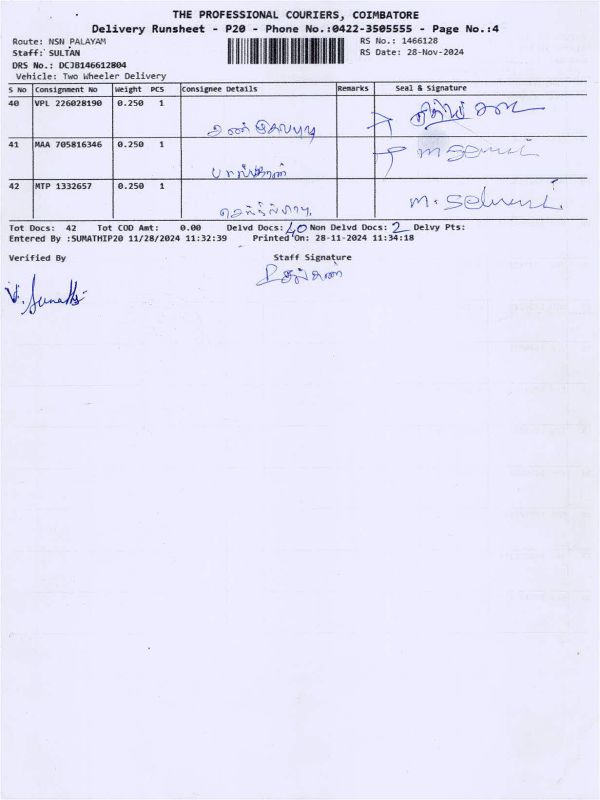 THE PROFESSIONAL COURIERS, COIMBATORE
Delivery Runsheet - P20 - Phone No.:0422-3505555 - Page No.:4
Route: NSN PALAYAM RS No.: 1466128
Staff: SULTAN RS Date: 28-Nov-2024
DRS No.: DCJB146612804
Vehicle: Two Wheeler Delivery
S No Consignment No Weight PCS Consignee Details Remarks Seal & Signature
40 VPL 226028190 0.250 1
41 MAA 705816346 0.250 1
42 MTP 1332657 0.250 1
Tot Docs: 42 Tot COD Amt: 0.00 Delvd Docs: 40 Non Delvd Docs: 2 Delvy Pts:
Entered By :SUMATHIP20 11/28/2024 11:32:39 Printed On: 28-11-2024 11:34:18
Verified By Staff Signature